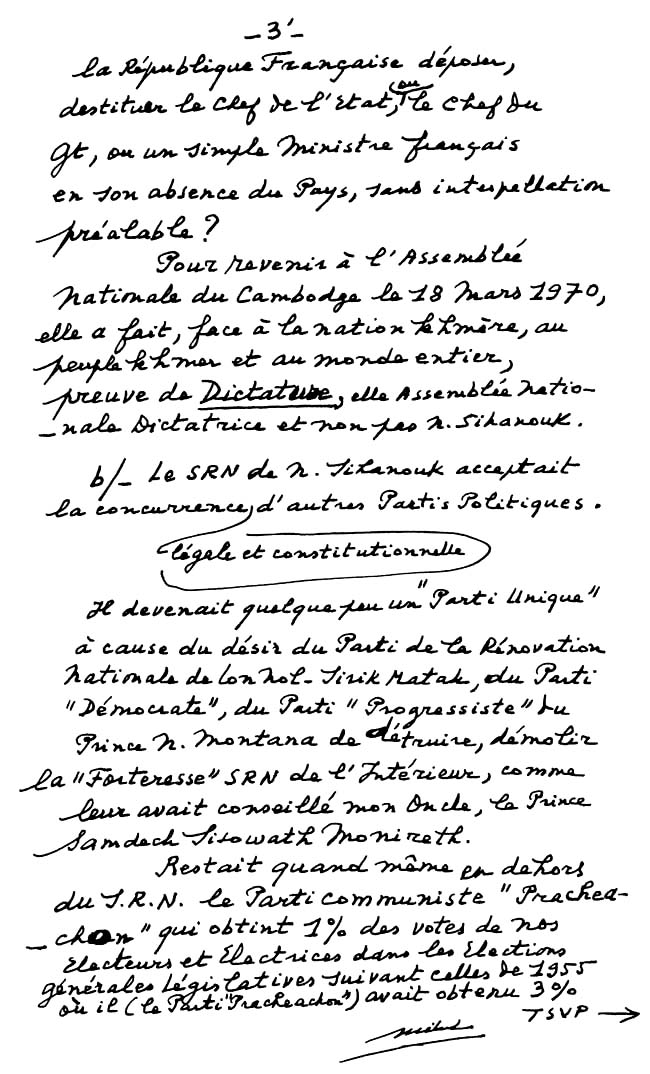 - 3' -
la République Française déposer,
destituer le Chef de l'Etat, ou le Chef du
Gt, ou un simple Ministre français
en son absence du Pays, sans interpellation
préalable ?
Pour revenir à l'Assemblée
Nationale du Cambodge le 18 Mars 1970,
elle a fait, face à la nation khmère, au
peuple khmer et au monde entier,
preuve de Dictature, elle Assemblée Natio-
- nale Dictatrice et non pas N. Sihanouk.
b/- Le SRN de N. Sihanouk acceptait
la concurrence, d'autres Partis Politiques.
légale et constitutionnelle
Il devenait quelque peu un "Parti Unique"
à cause du désir du Parti de la Rénovation
Nationale de Lon Nol - Sirik Matak, du Parti
"Démocrate", du Parti "Progressiste" du
Prince N. Montana de détruire, démolir
la "Forteresse" SRN de l'Intérieur, comme
leur avait conseillé mon Oncle, le Prince
Samdech Sisowath Monireth.
Restait quand même en dehors
du S.R.N. le Parti communiste "Prachea-
- chon" qui obtint 1% des votes de nos
Electeurs et Electrices dans les Elections
générales Législatives suivant celles de 1955
où il (le Parti "Pracheachon") avait obtenu 3%
TSVP →